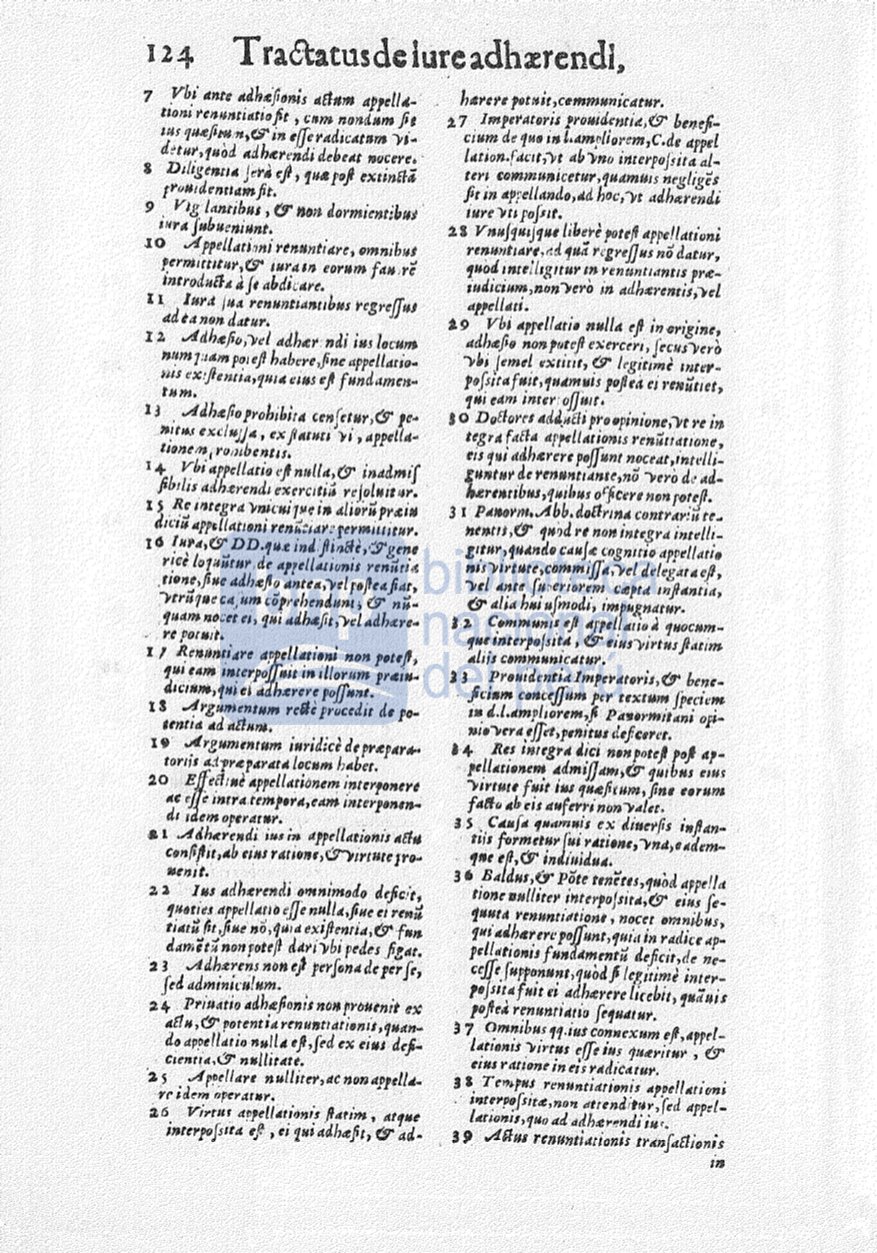 124 Tractatus de iure adhærendi,
7 Vbi ante adhæsionis actum appella-
tioni renuntiatio fit, cum nondum sit
ius quæsitum, & in esse radicatum vi-
detur, quòd adhærendi debeat nocere.
8 Diligentia serà est, quæ post extinctā
prouidentiam fit.
9 Vigilantibus, & non dormientibus
iura subueniunt.
10 Appellationi renuntiare, omnibus
permittitur, & iura in eorum fauorē
introducta à se abdicare.
11 Iura sua renuntiantibus regressus
ad ea non datur.
12 Adhæsio, vel adhærendi ius locum
numquam potest habere, sine appellatio-
nis existentia, quia eius est fundamen-
tum.
13 Adhæsio prohibita censetur, & pe-
nitus exclussa, ex statuti vi, appella-
tionem prohibentis.
14 Vbi appellatio est nulla, & inadmis
sibilis adhærendi exercitiū resoluitur.
15 Re integra vnicuique in aliorū præiu
diciū appellationi renūciare permittitur.
16 Iura, & DD. quæ indistinctè, & gene
ricè loquūtur de appellationis renūtia
tione, siue adhæsio antea, vel postea fiat,
vtrūque casum cōprehendunt, & nū-
quam nocet ei, qui adhæsit, vel adhære-
re potuit.
17 Renuntiare appellationi non potest,
qui eam interpossuit in illorum præiu-
dicium, qui ei adhærere possunt.
18 Argumentum rectè procedit de po-
tentia ad actum.
19 Argumentum iuridicè de præpara-
toriis ad præparata locum habet.
20 Effectiuè appellationem interponere
ac esse intra tempora, eam interponen-
di idem operatur.
21 Adhærendi ius in appellationis actu
consistit, ab eius ratione, & virtute pro-
uenit.
22 Ius adhærendi omnimodo deficit,
quoties appellatio esse nulla, siue ei renū
tiatū sit, siue nō, quia existentia, & fun
damētū non potest dari vbi pedes figat.
23 Adhærens non est persona de per se,
sed adminiculum.
24 Priuatio adhæsionis non prouenit ex
actu, & potentia renuntiationis, quan-
do appellatio nulla est, sed ex eius defi-
cientia, & nullitate.
25 Appellare nulliter, ac non appella-
re idem operatur.
26 Virtus appellationis statim, atque
interpossita est, ei qui adhæsit, & ad-
hærere potuit, communicatur.
27 Imperatoris prouidentia, & benefi-
cium de quo in l. ampliorem, C. de appel
lation. facit, vt ab vno interpossita al-
teri communicetur, quamuis negligēs
sit in appellando, ad hoc, vt adhærendi
iure vti possit.
28 Vnusquisque liberè potest appellationi
renuntiare, ad quā regressus nō datur,
quod intelligitur in renuntiantis præ-
iudicium, non verò in adhærentis, vel
appellati.
29 Vbi appellatio nulla est in origine,
adhæsio non potest exerceri, secus verò
vbi semel extitit, & legitimè inter-
possita fuit, quamuis postea ei renūtiet,
qui eam interpossuit.
30 Doctores adducti pro opinione, vt re in
tegra facta appellationis renūtiatione,
eis qui adhærere possunt noceat, intelli-
guntur de renuntiante, nō vero de ad-
hærentibus, quibus officere non potest.
31 Panorm. Abb. doctrina contrariū te-
nentis, & quod re non integra intelli-
gitur, quando causæ cognitio appellatio
nis virtute, commissa, vel delegata est,
vel ante superiorem cæpta instantia,
& alia huiusmodi, impugnatur.
32 Communis est appellatio à quocum-
que interpossita, & eius virtus statim
aliis communicatur.
33 Prouidentia Imperatoris, & bene-
ficium concessum per textum speciem
in d. l. ampliorem, si Panormitani opi-
nio vera esset, penitus deficeret.
34 Res integra dici non potest post ap-
pellationem admissam, & quibus eius
virtute fuit ius quæsitum, sine eorum
facto ab eis auferri non valet.
35 Causa quamuis ex diuersis instan-
tiis formetur sui ratione, vna, eadem-
que est, & indiuidua.
36 Baldus, & Pōte tenētes, quòd appella
tione nulliter interpossita, & eius se-
quuta renuntiatione, nocet omnibus,
qui adhærere possunt, quia in radice ap-
pellationis fundamentū deficit, de ne-
cesse supponunt, quòd si legitimè inter-
possita fuit ei adhærere licebit, quāuis
posteà renuntiatio sequatur.
37 Omnibus qq. ius connexum est, appel-
lationis virtus esse ius quæritur, &
eius ratione in eis radicatur.
38 Tempus renuntiationis appellationi
interpossitæ, non attenditur, sed appel-
lationis, quo ad adhærendi ius.
39 Actus renuntiationis transactionis
in
biblioteca
nacional
del perú